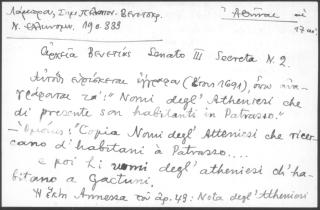 Λάμπρος, Συμ Πελοπον. Βενετοκρ.
Ν. Ελληνομν. 19 σ. 383
Ἀθῆναι
17 αι.
Ἀρχεῖα Βενετίας Senato III Secreta N. 2.
Αὐτόθι εὑρίσκεται ἔγγραφα (ἔτους 1691), ὅπου ἀνα-
γράφονται τά: "Nomi degl' Atheniesi che
di presente son habitanti in Patrasso."
Ὁμοίως: "Copia Nomi degl' Atteniesi che ricer-
cano d'habitani à Patrasso....
e poi li nomi degl' atheniesi ch'ha-
bitano a Gactuni.
Ἡ ἕκτη Annessa τοῦ ἀρ. 49: Nota degl' Attheniesi